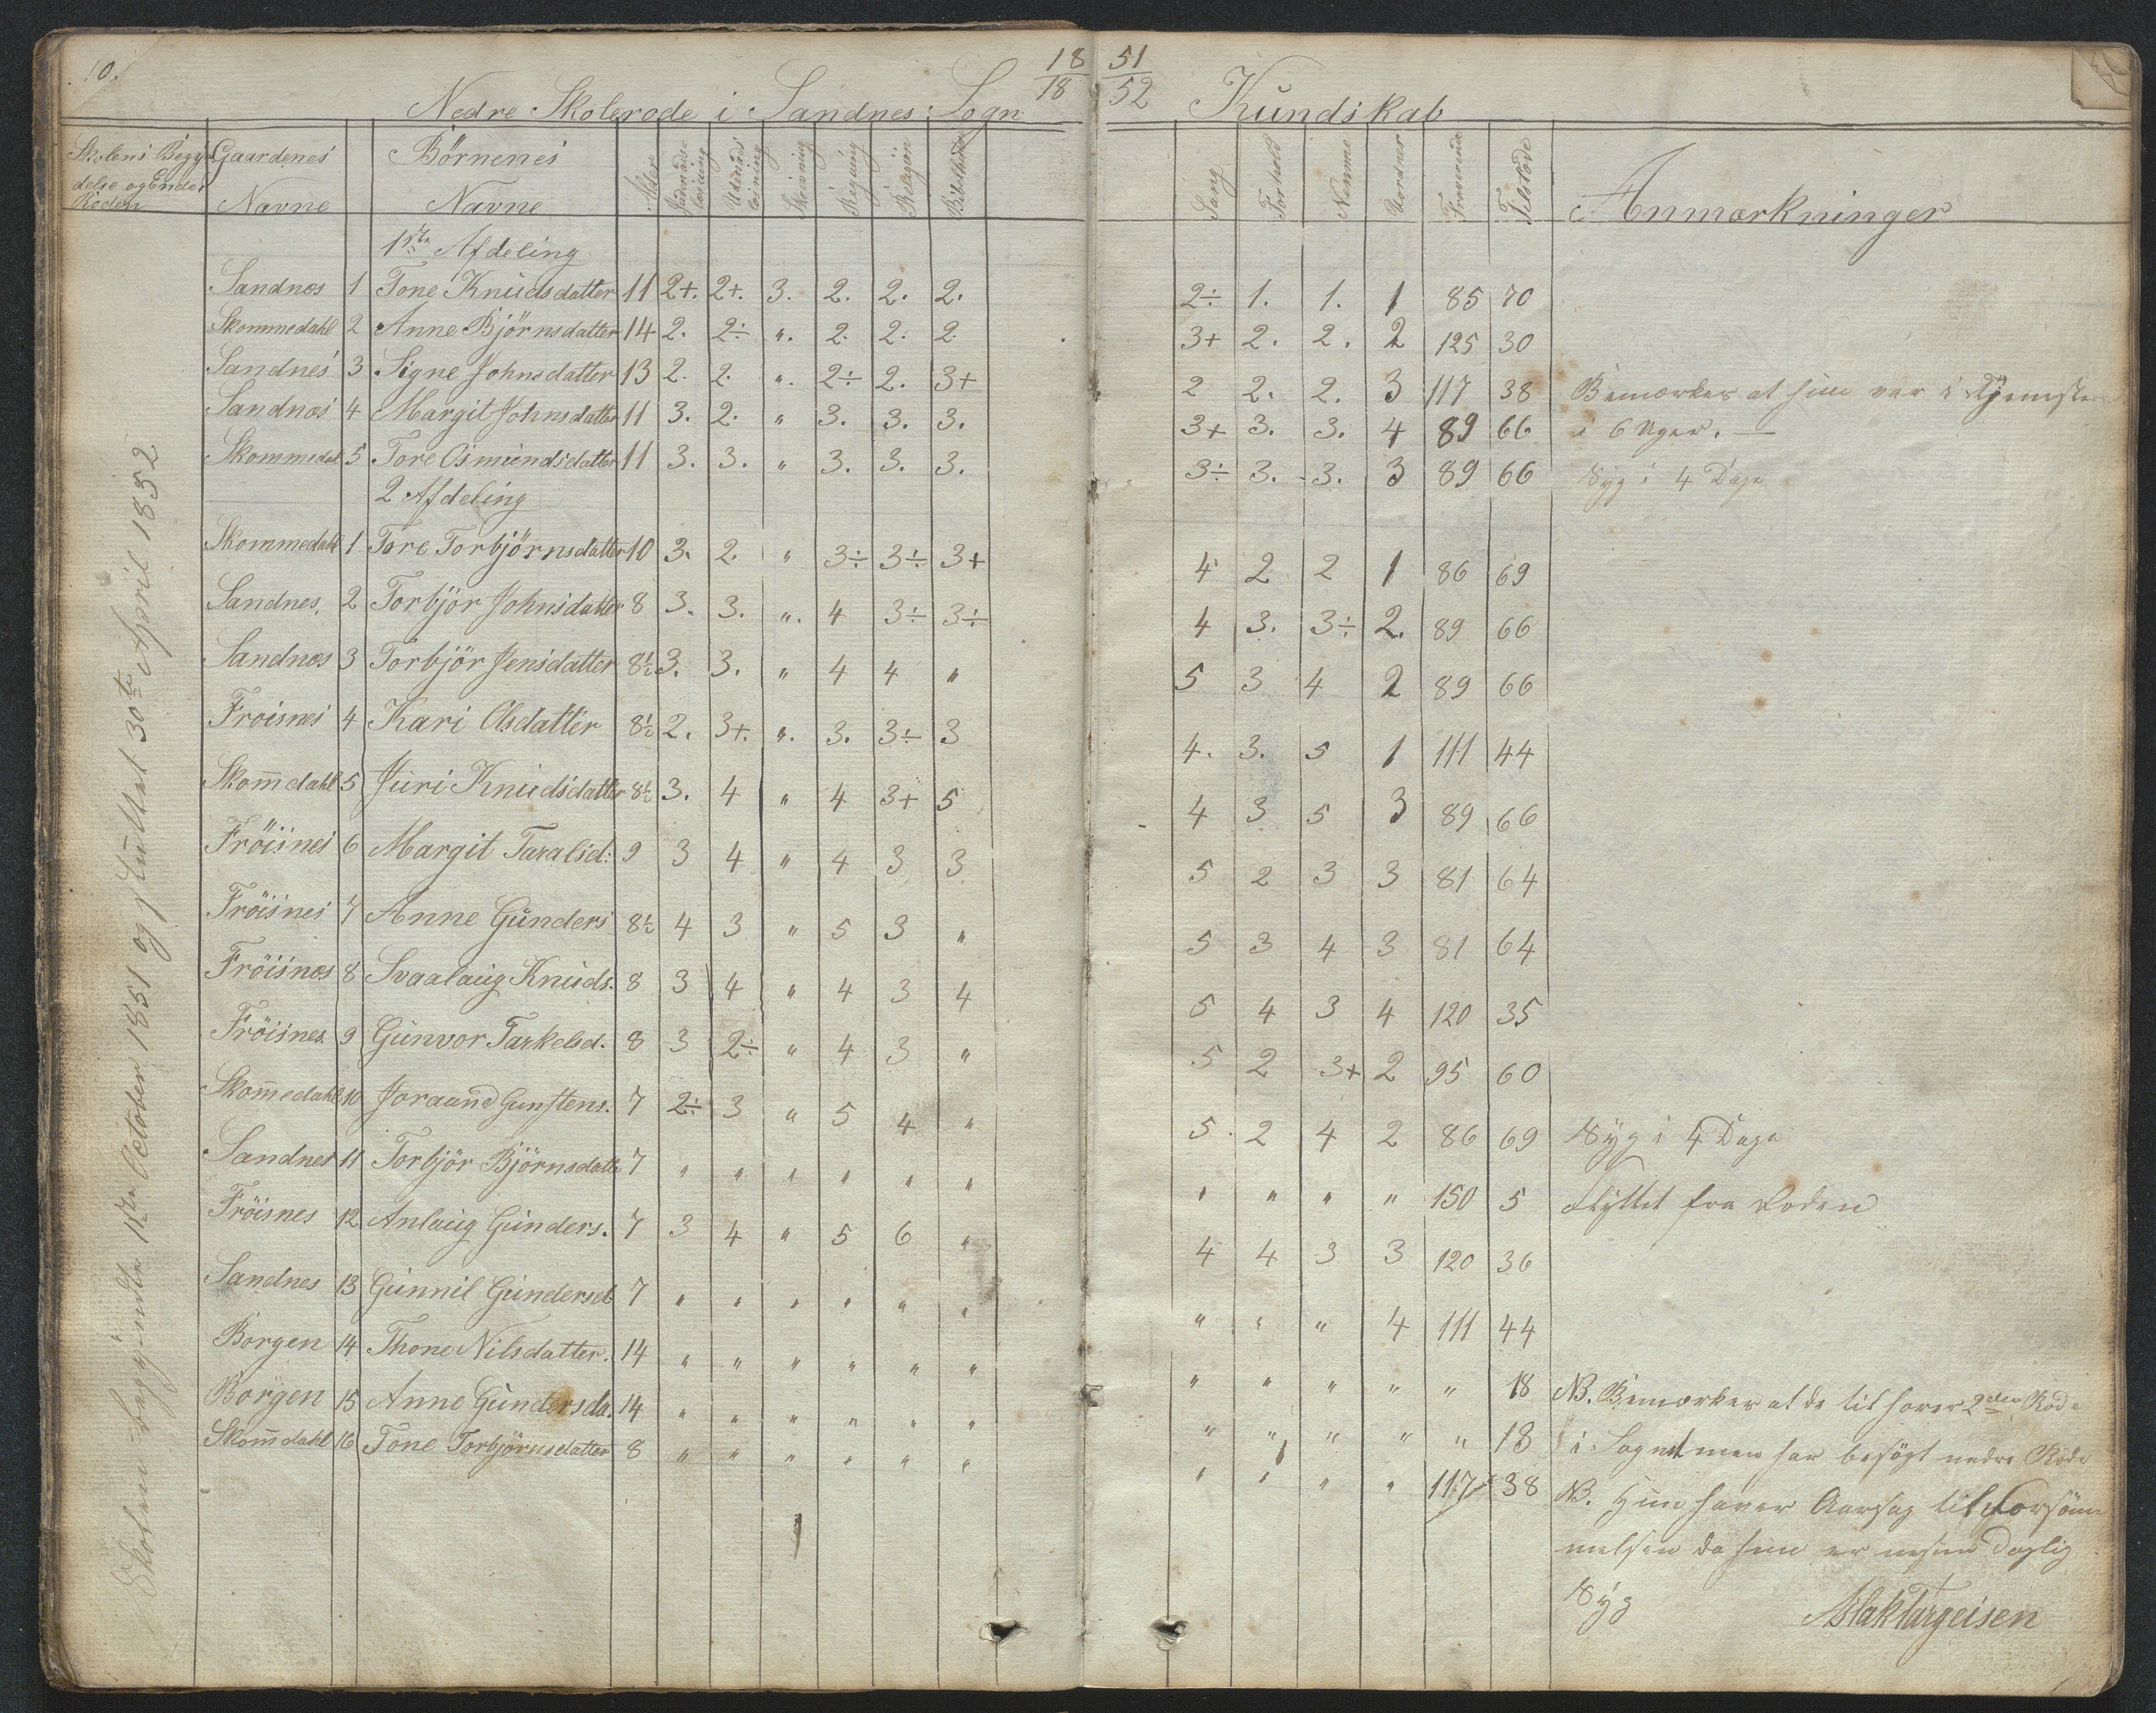 10.
18 51
18 52
Nedre Skolerode i Sandnes Sogn Kundskab
Skolens Begyn- Gaardenes Börnenes Alder Indenads- Udenads Skrivning Regning Religion Bibelhistorie Sang Forhold Nemme Uordner Fraværende Tilstede Anmærkninger
delse og Ende i Navne Navne læsning læsning
Roden
1ste Afdeling
Sandnæs 1 Tone Knudsdatter 11 2+. 2+. 3. 2. 2. 2. 2÷ 1. 1. 1 85 70
Skommedahl 2 Anne Björnsdatter 14 2. 2÷ ". 2. 2. 2. 3+ 2. 2. 2 125 30
Sandnes 3 Signe Johnsdatter 13 2. 2. ". 2÷ 2. 3+ 2 2. 2. 3 117 38 Bemærkes at hun var i Tjeneste
Sandnæs 4 Margit Johnsdatter 11 3. 2. " 3. 3. 3. 3+ 3. 3. 4 89 66 i 6 Uger. —
Skommedal 5 Tore Osmundsdatter 11 3. 3. " 3. 3. 3. 3÷ 3. 3. 3 89 66 Syg i 4 Dage
2 Afdeling
Skommedahl 1 Tore Torbjörnsdatter 10 3. 2. " 3÷ 3÷ 3+ 4 2 2 1 86 69
Sandnes. 2 Torbjör Johnsdatter 8 3. 3. ". 4 3÷ 3÷ 4 3. 3÷ 2. 89 66
Sandnæs 3 Torbjör Jensdatter 8½ 3. 3. " 4 4 " 5 3 4 2 89 66
Froisnes 4 Kari Olsdatter 8½ 2. 3+. ". 3. 3÷ 3 4. 3. 5 1 111 44
Skom̄dahl 5 Juri Knudsdatter 8½ 3. 4 " 4 3+ 5 4 3 5 3 89 66
Fröisnes 6 Margit Taralsd: 9 3 4 " 4 3 3 5 2 3 3 81 64
Fröisnes 7 Anne Gunders 8½ 4 3 " 5 3 " 5 3 4 3 81 64
Fröisnæs 8 Svaalaug Knuds. 8 3 4 " 4 3 4 5 4 3 4 120 35
Fröisnes 9 Gunvor Tarkelsd. 8 3 2÷ " 4 3 " 5 2 3+ 2 95 60
Skom̄edahl 10 Joraand Gunstens. 7 2÷ 3 " 5 4 " 5. 2 4 2 86 69 Syg i 4 Dage
Sandnes 11 Torbjör Björnsdatt 7 " " " " " " " " " " 150 5 Flyttet fra Roden
Fröisnes 12 Anlaug Gunders. 7 3 4 " 5 6 " 4 4 3 3 120 36
Sandnes 13 Gunnil Gundersd 7 " " " " " " " " " 4 111 44
Borgen 14 Thone Nilsdatter. 14 " " " " " " " " " " " 18 NB. Bemærkes at de tilhører 2den Rode
Borgen 15 Anne Gundersda. 14 " " " " " " " " " " " 18 i Sognet men har besögt nedre Rode
Skom̄dahl 16 Tone Torbjörnsdatter 8 " " " " " " " " " " 117 38 NB. Hun haver Aarsag til Forsöm-
melsen da hun er næsten daglig
Syg Aslak Targeisen
Skolen begyndte 11te October 1851 og sluttet 30te April 1852